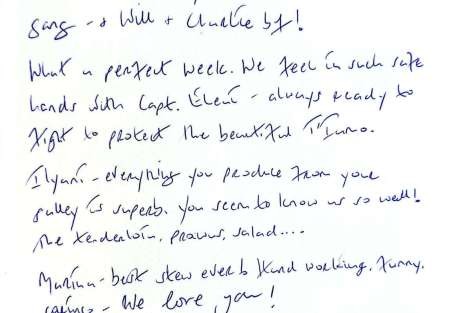 Sang - + Will + Charlie bf!
What a perfect week. We feel in such safe
hands with Capt. Eleni - always ready to
fight to protect the beautiful
Ilyani - everything you produce from your
galley is superb. You seem to know us so well!
The tenderloin, prawns, salad....
Marina - best stew ever Hard working, funny,
caring - We love you!